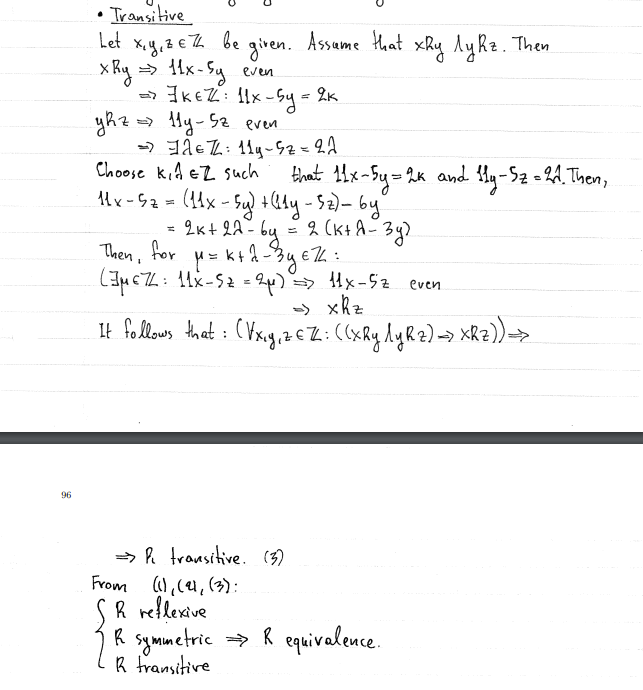 • Transitive
Let x,y,z∈ℤ be given. Assume that xRy ∧ yRz. Then
xRy ⇒ 11x-5y even
⇒ ∃κ∈ℤ: 11x-5y = 2κ
yRz ⇒ 11y-5z even
⇒ ∃λ∈ℤ: 11y-5z = 2λ
Choose κ,λ∈ℤ such that 11x-5y=2κ and 11y-5z=2λ. Then,
11x-5z = (11x-5y)+(11y-5z)-6y
= 2κ+2λ-6y = 2(κ+λ-3y)
Then, for μ=κ+λ-3y∈ℤ:
(∃μ∈ℤ: 11x-5z=2μ) ⇒ 11x-5z even
⇒ xRz
It follows that: (∀x,y,z∈ℤ: ((xRy∧yRz)⇒xRz)) ⇒
96
⇒ R transitive. (3)
From (1),(2),(3):
{ R reflexive
R symmetric ⇒ R equivalence.
R transitive